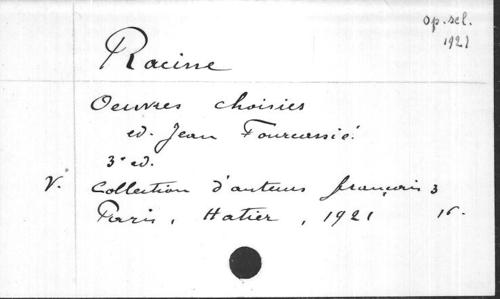 op. sel.
1921
Racine
Oeuvres choisies
ed. Jean Fourcassié.
3e ed.
V. Collection d'auteurs français 3
Paris, Hatier, 1921 16.